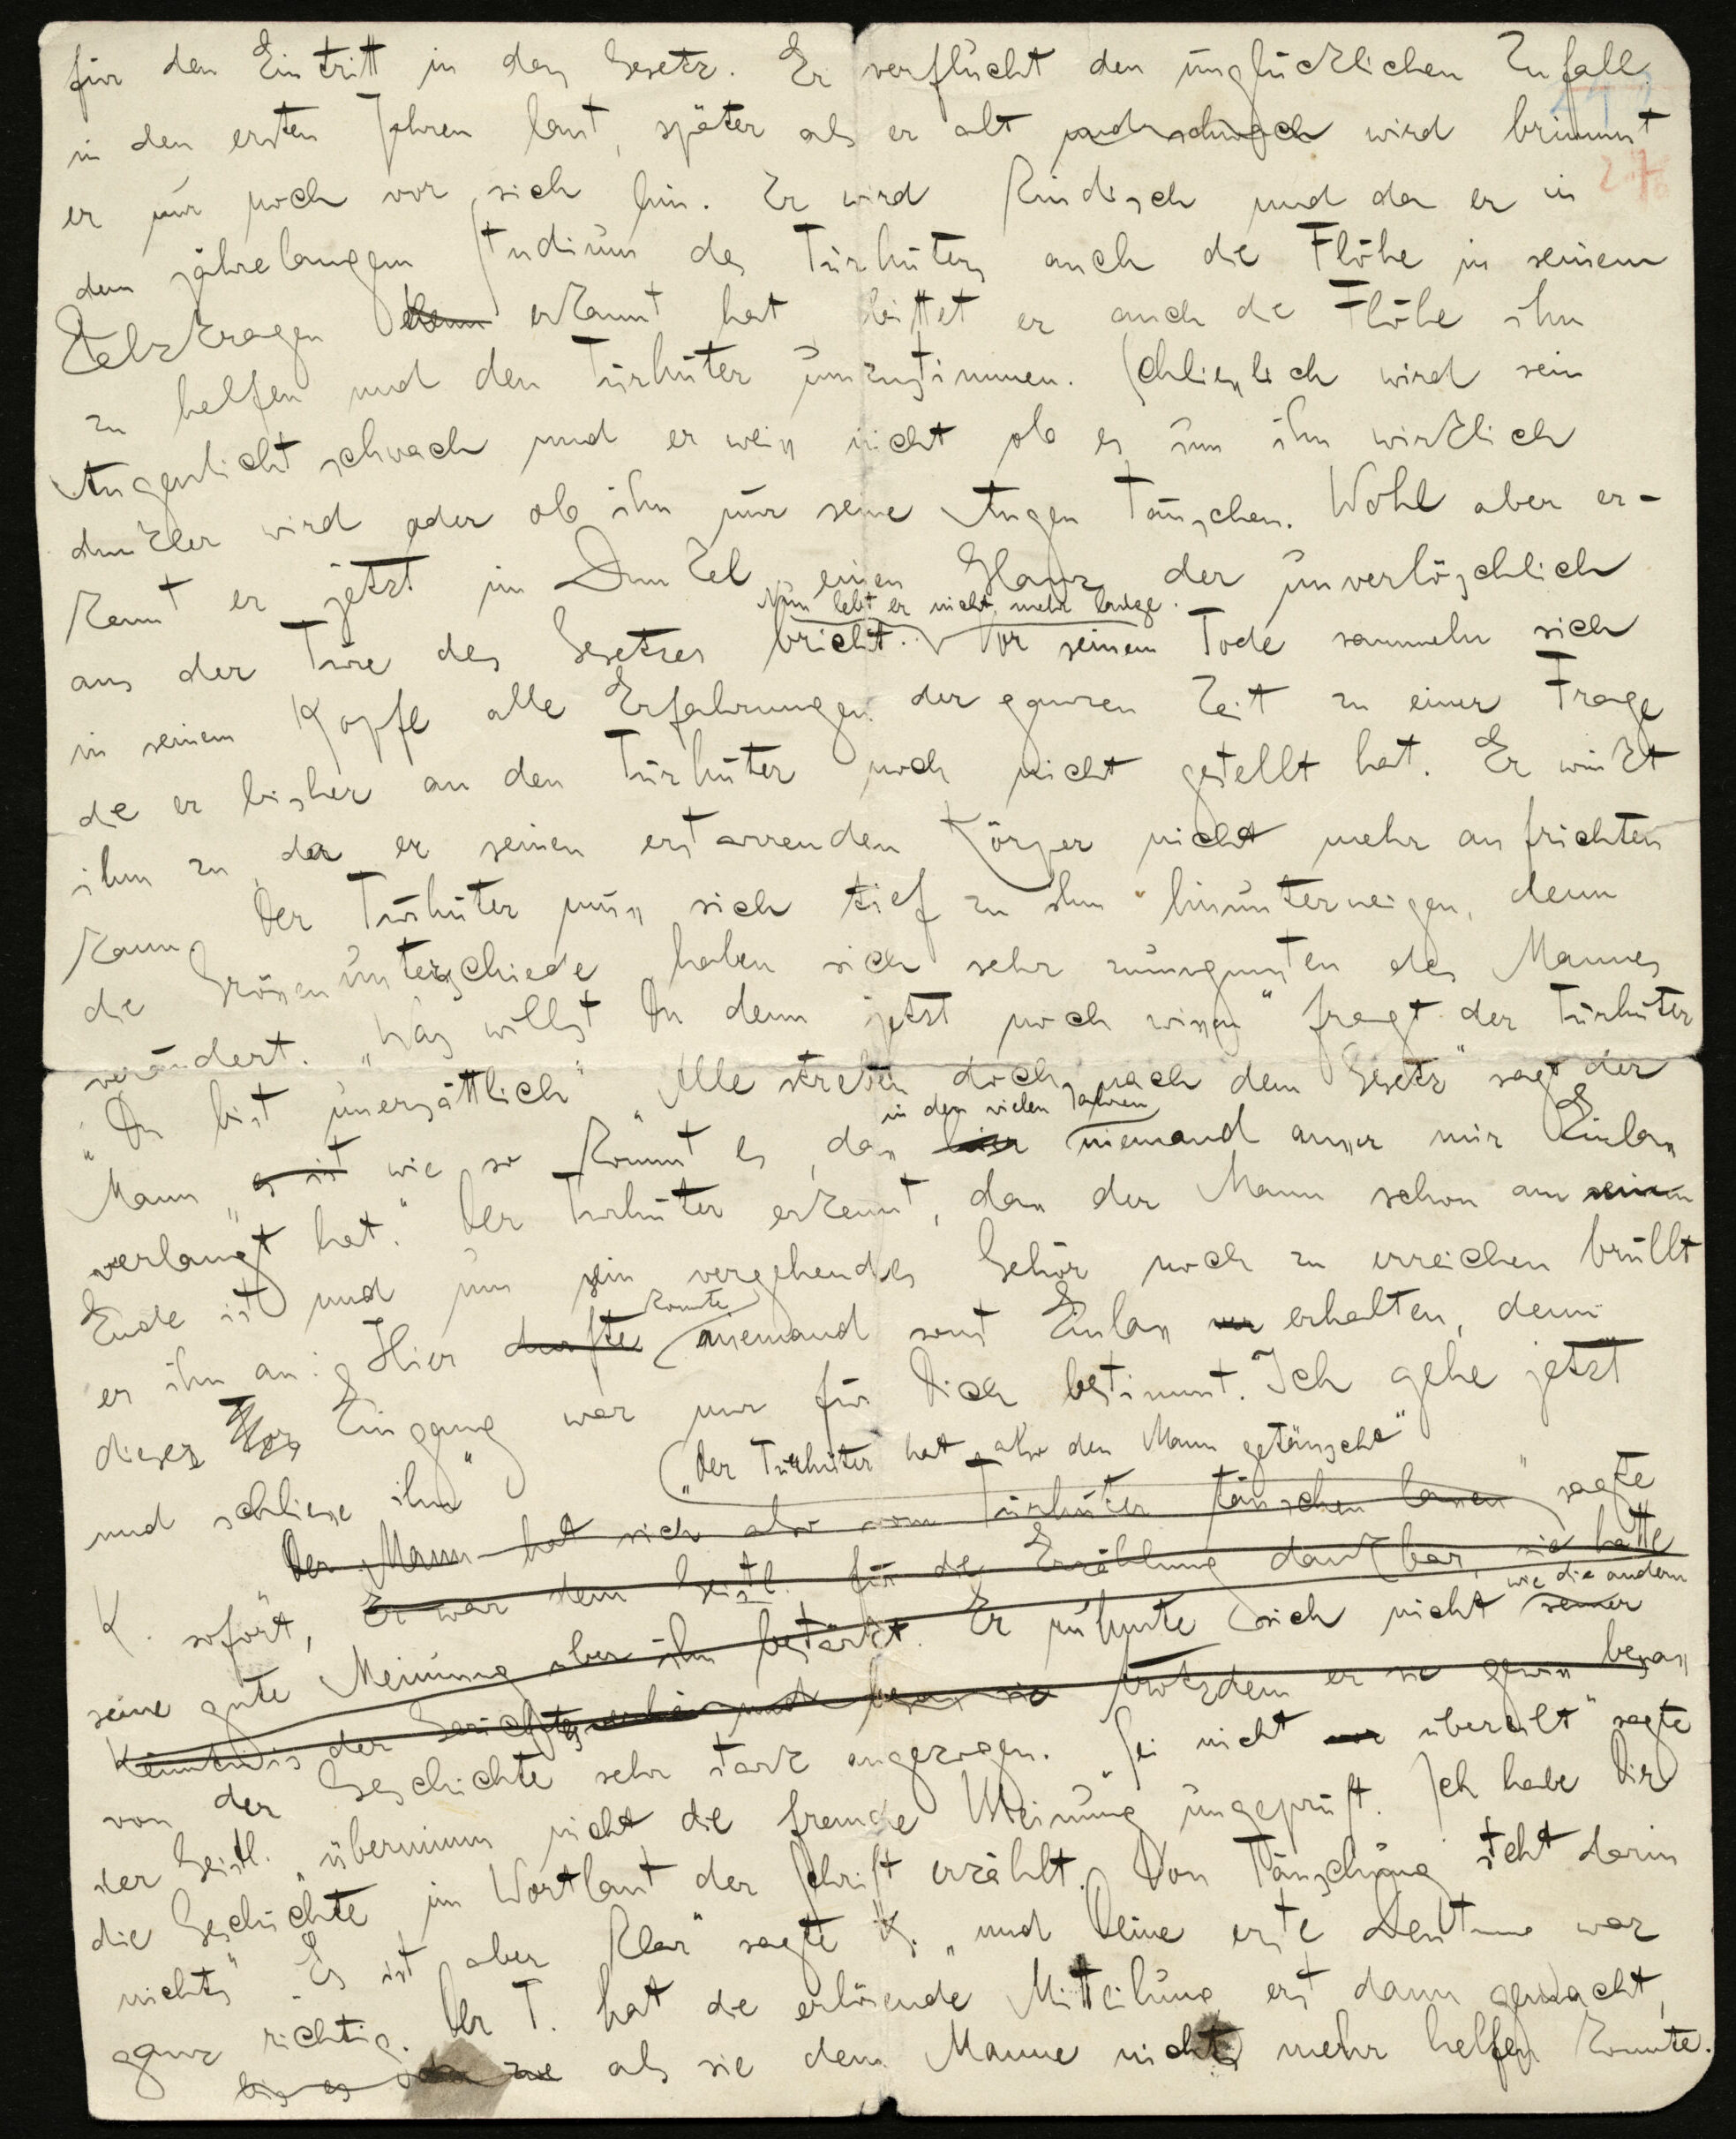 für den Eintritt in das Gesetz. Er verflucht den unglücklichen Zufall
in den ersten Jahren laut, später als er alt und schwach wird brummt
er nur noch vor sich hin. Er wird kindisch und da er in
dem jahrelangen Studium des Türhüters auch die Flöhe in seinem
Pelzkragen erkannt hat bittet er auch die Flöhe ihm
zu helfen und den Türhüter umzustimmen. Schliesslich wird sein
Augenlicht schwach und er weiss nicht ob es um ihn wirklich
dunkler wird oder ob ihn nur seine Augen täuschen. Wohl aber er-
kennt er jetzt im Dunkel einen Glanz, der unverlöschlich
Nun lebt er nicht mehr lange.
aus der Türe des Gesetzes bricht. Vor seinem Tode sammeln sich
in seinem Kopfe alle Erfahrungen der ganzen Zeit zu einer Frage
die er bisher an den Türhüter noch nicht gestellt hat. Er winkt
ihm zu, da er seinen erstarrenden Körper nicht mehr aufrichten
kann. Der Türhüter muss sich tief zu ihm hinunterneigen, denn
die Grössenunterschiede haben sich sehr zuungunsten des Mannes
verändert. „Was willst Du denn jetzt noch wissen“ fragt der Türhüter
„Du bist unersättlich“ „Alle streben doch nach dem Gesetz“ sagt der
in den vielen Jahren
Mann „es ist wie so kommt es, dass hier niemand ausser mir Einlass
verlangt hat.“ Der Türhüter erkennt, dass der Mann schon am seinem
Ende ist und um sein vergehendes Gehör noch zu erreichen brüllt
konnte
er ihn an: „Hier durfte niemand sonst Einlass erhalten, denn
dieser Eingang war nur für Dich bestimmt. Ich gehe jetzt
und schliesse ihn“
„Der Türhüter hat also den Mann getäuscht“
Der Mann hat sich also vom Türhüter täuschen lassen“ sagte
K. sofort, Er war dem Geistl. für die Erzählung dankbar, sie hatte
wie die andern
seine gute Meinung über ihn bestärkt. Er rühmte sich nicht seiner
Kenntnis der Gerichts trotzdem er sie gewiss besass
von der Geschichte sehr stark angezogen. „Sei nicht übereilt“ sagte
der Geistl. „übernimm nicht die fremde Meinung ungeprüft. Ich habe Dir
die Geschichte im Wortlaut der Schrift erzählt. Von Täuschung steht darin
nichts“ „Es ist aber klar“ sagte K. „und Deine erste Deutung war
ganz richtig. Der T. hat die erlösende Mitteilung erst dann gemacht,
bis es als sie dem Manne nichts mehr helfen konnte.